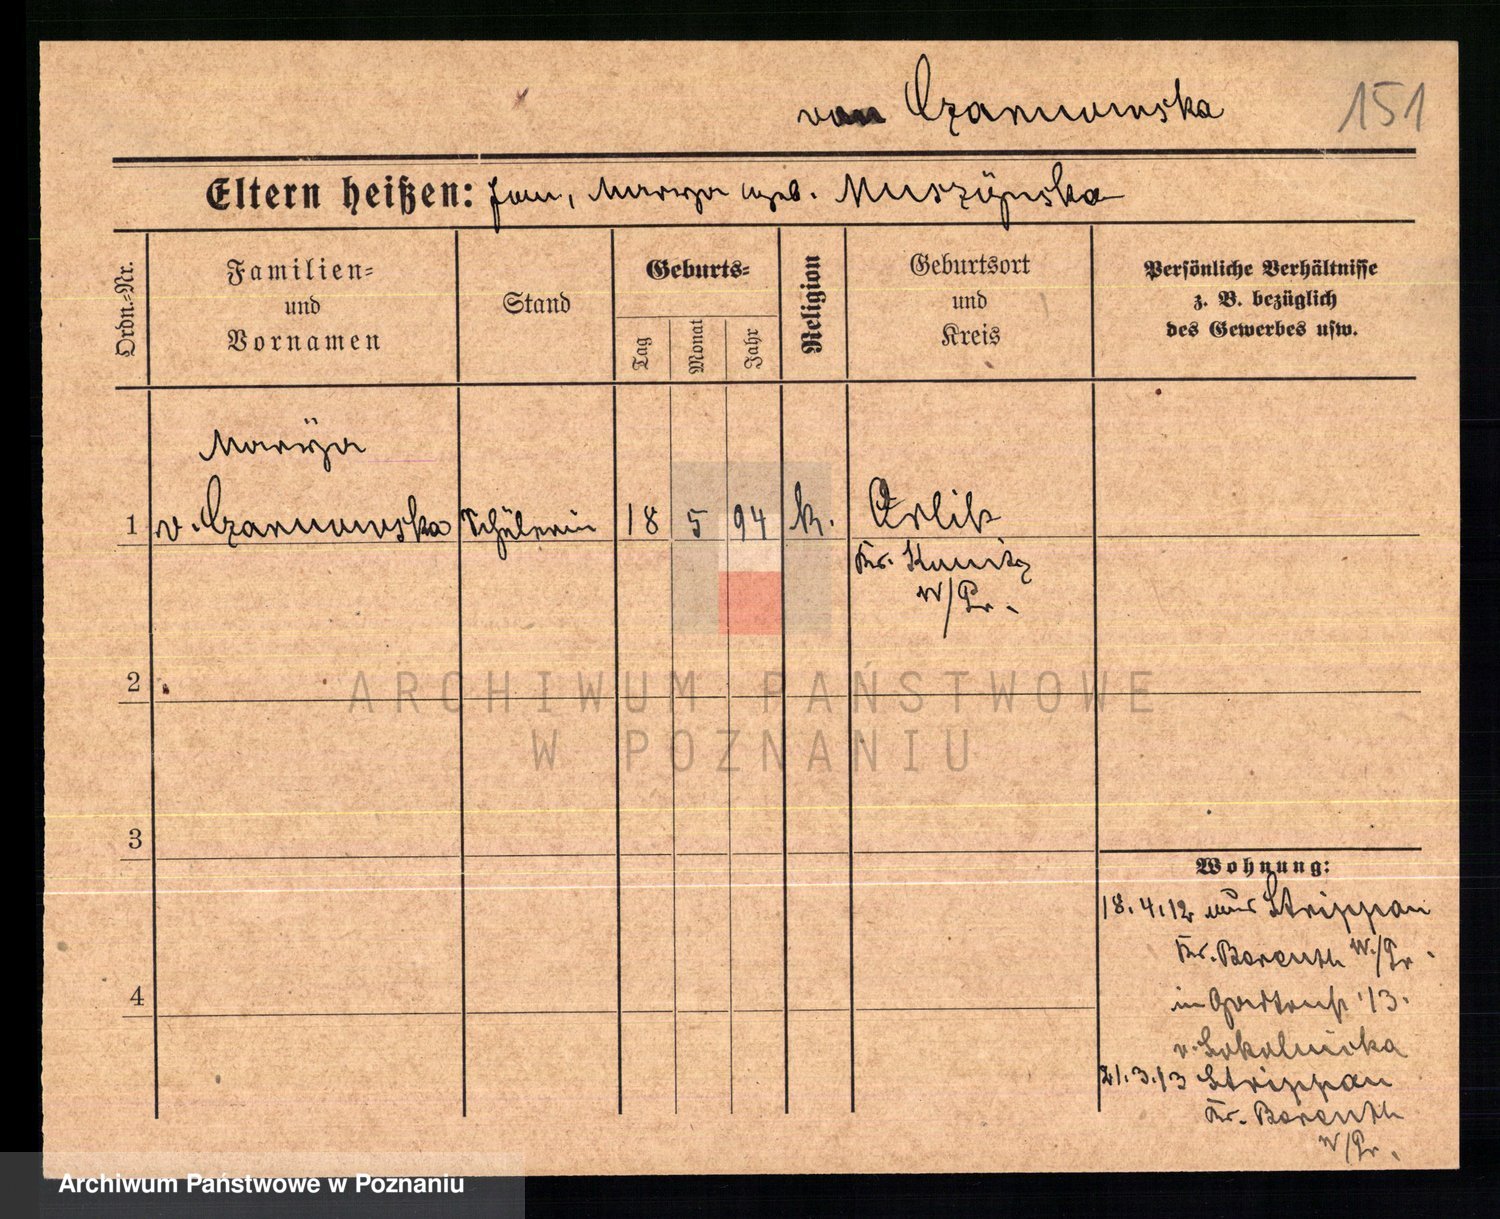 von Czarnowska
151
Eltern heißen: Jan, Marya geb. Muszÿnska
Ordn.=Nr.
Familien=
und
Vornamen
Stand
Geburts=
Tag
Monat
Jahr
Religion
Geburtsort
und
Kreis
Persönliche Verhältnisse
z. B. bezüglich
des Gewerbes usw.
Marÿa
1 v. Czarnowska Schülerin 18 5 94 k. Orlik
Kr. Konitz
W/Pr.
2
3
4
ARCHIWUM PAŃSTWOWE
W POZNANIU
Wohnung:
18.4.12 aus Strippau
Kr. Berenth W./Pr.
in 13.
v. Sokolnicka
21.3.13 Strippau
Kr. Berenth
W/Pr.
Archiwum Państwowe w Poznaniu